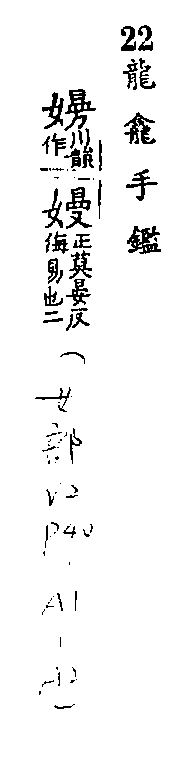 22
龍龕手鑑
川韻作嫚正莫晏反侮易也二(女部V2P40.A1-A2)